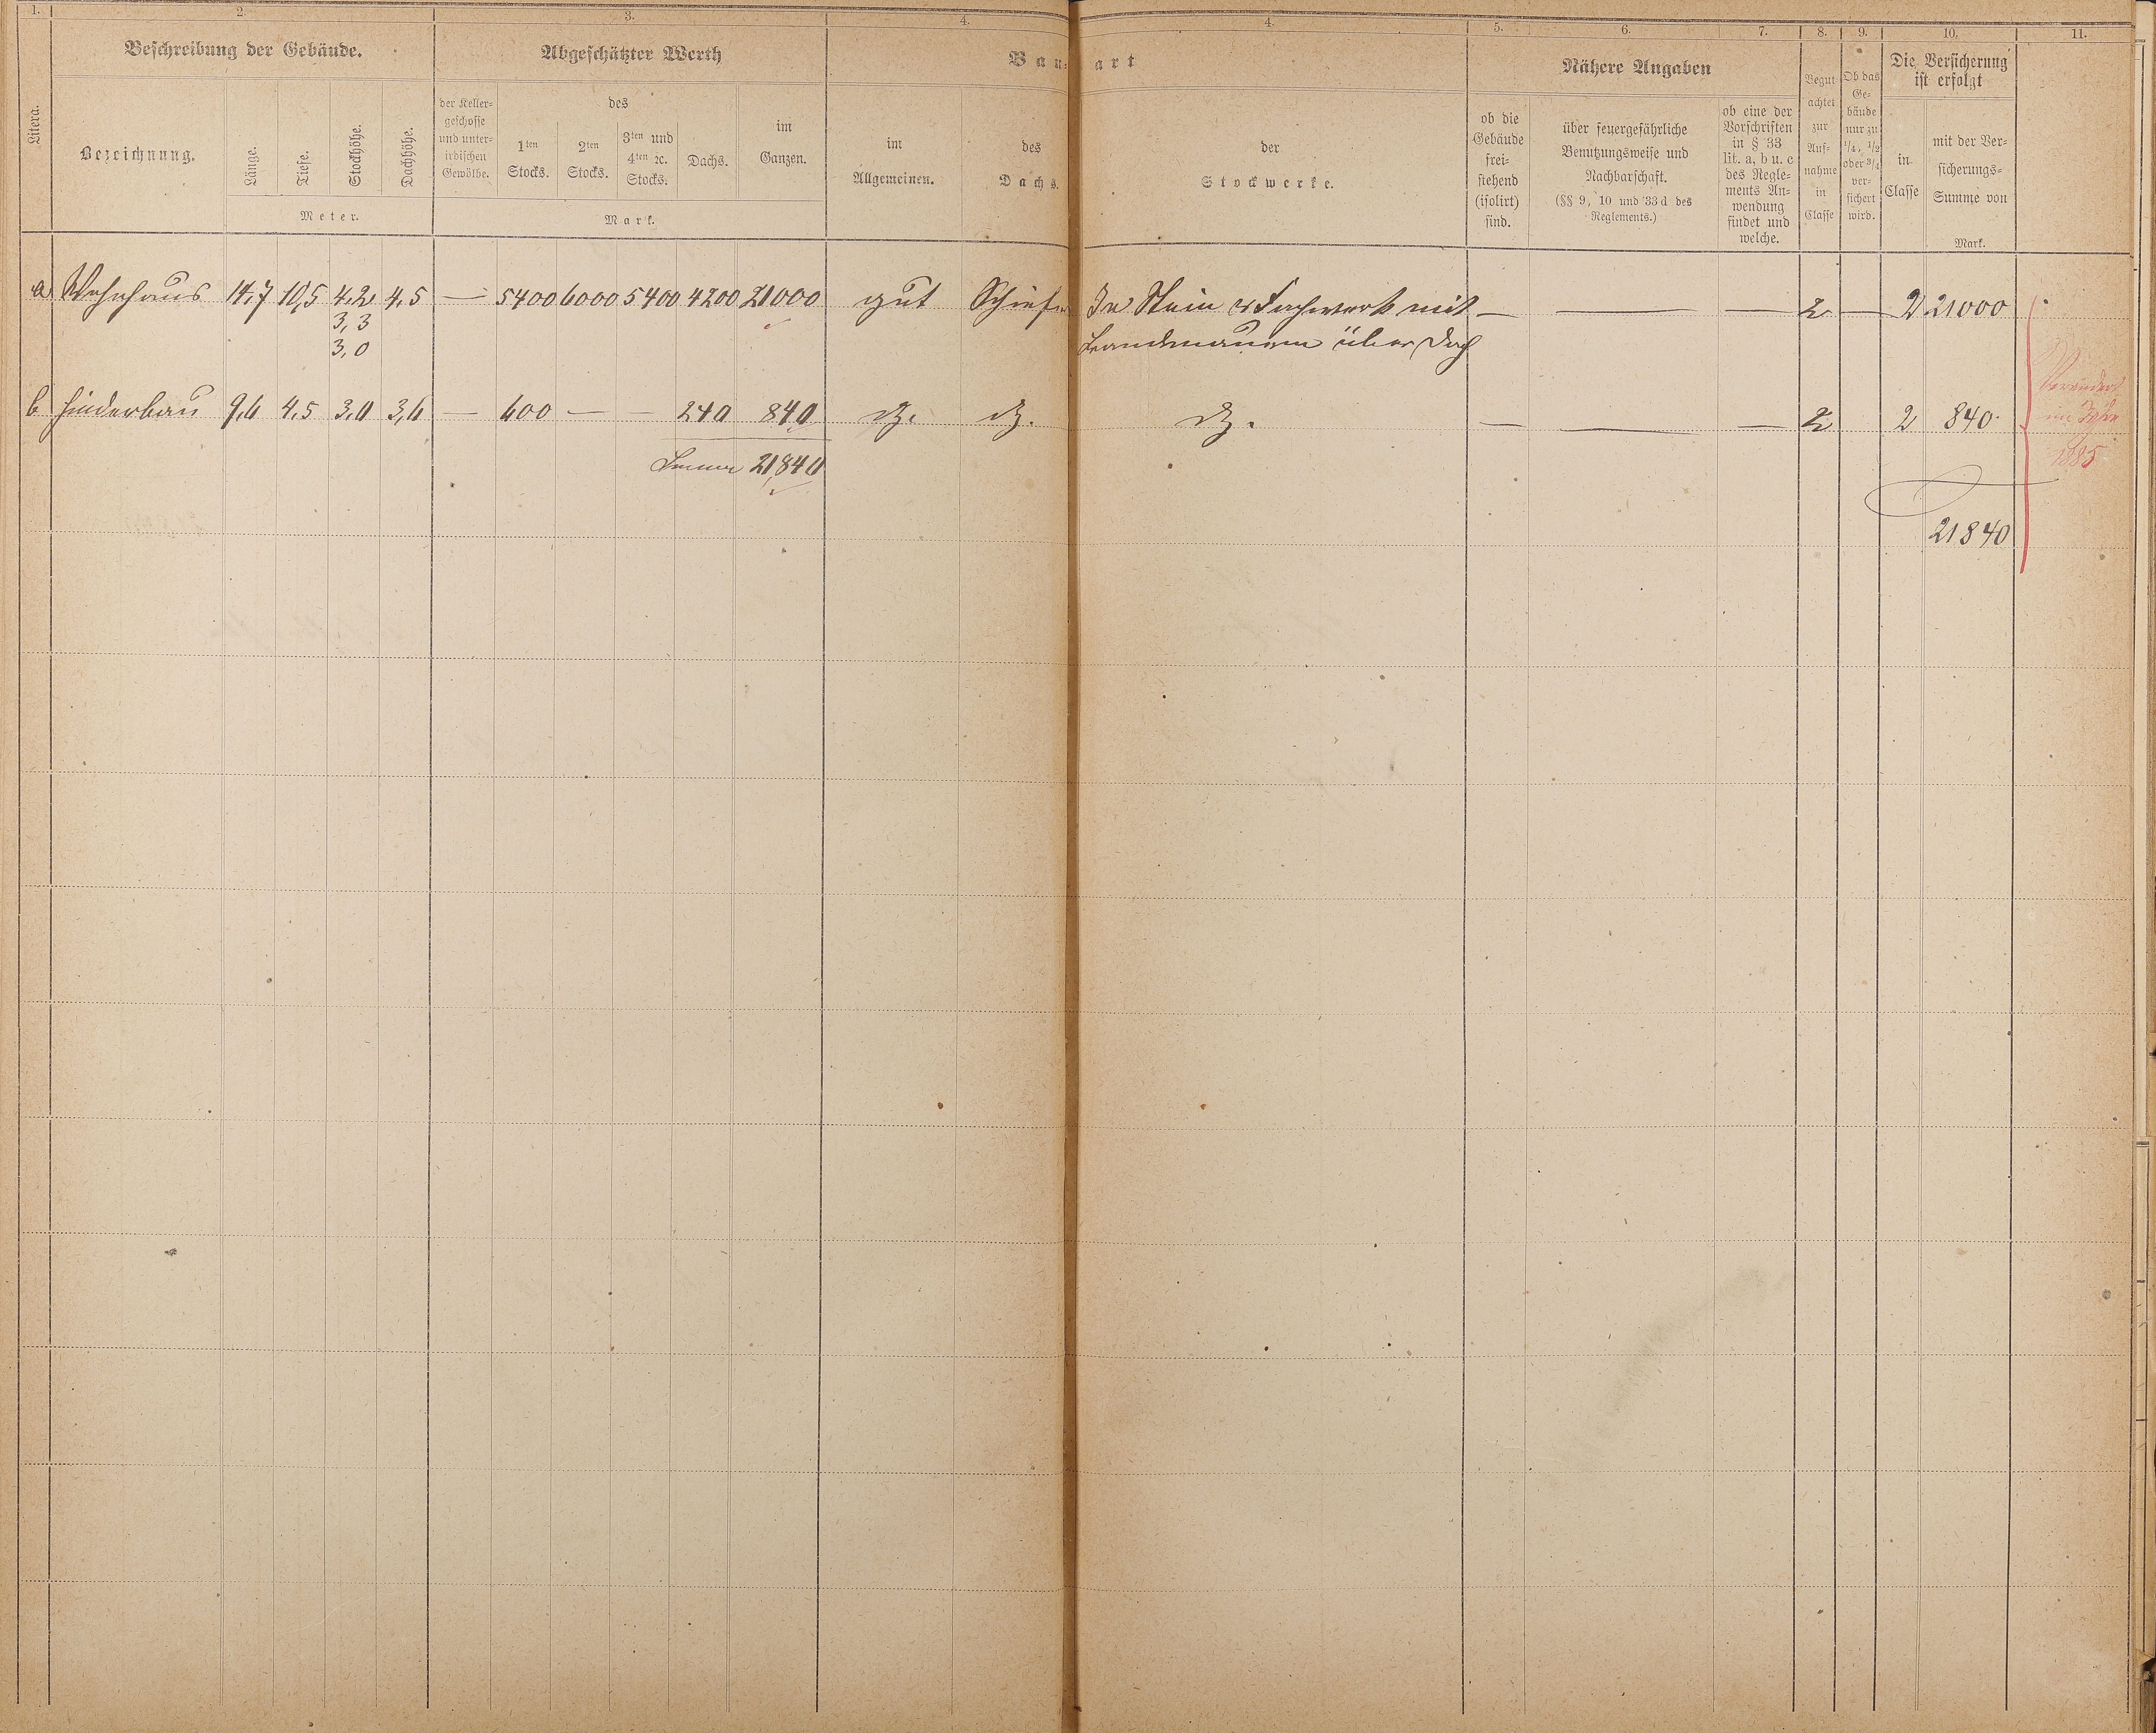 1. 2. 3. 4. 4. 5. 6. 7. 8. 9. 10. 11.
Litera.
Beschreibung der Gebäude.
Bezeichnung.
Länge.
Tiefe.
Stockhöhe.
Dachhöhe.
Meter.
Abgeschätzter Werth
der Keller-
geschosse
und unter-
irdischen
Gewölbe.
des
1ten
Stocks.
2ten
Stocks.
3ten und
4ten ꝛc.
Stocks.
Dachs.
im
Ganzen.
Mark.
Bau-art
im
Allgemeinen.
des
Dachs.
der
Stockwerke.
Nähere Angaben
ob die
Gebäude
frei-
stehend
(isolirt)
sind.
über feuergefährliche
Benutzungsweise und
Nachbarschaft.
(§§ 9, 10 und 33 d des
Reglements.)
ob eine der
Vorschriften
in § 33
lit. a, b u. c
des Regle-
ments An-
wendung
findet und
welche.
Begut-
achtet
zur
Auf-
nahme
in
Classe
Ob das
Ge-
bäude
nur zu
1/4, 1/2
oder 3/4
ver-
sichert
wird.
Die Versicherung
ist erfolgt
in
Classe
mit der Ver-
sicherungs-
Summe von
Mark.
a Wohnhaus 14,7 10,5 4,2 4,5 — 5400 6000 5400 4200 21000 gut Schiefer In Stein & Fachwerk mit — — — 2 — 2 21000
3,3
3,0 Brandmauern über Dach
b Hinderbau 9,6 4,5 3,0 3,6 — 600 — — 240 840 do. do. do. — — — 2 2 840
Summa 21,840
21840
Verändert
im Jahre
1885